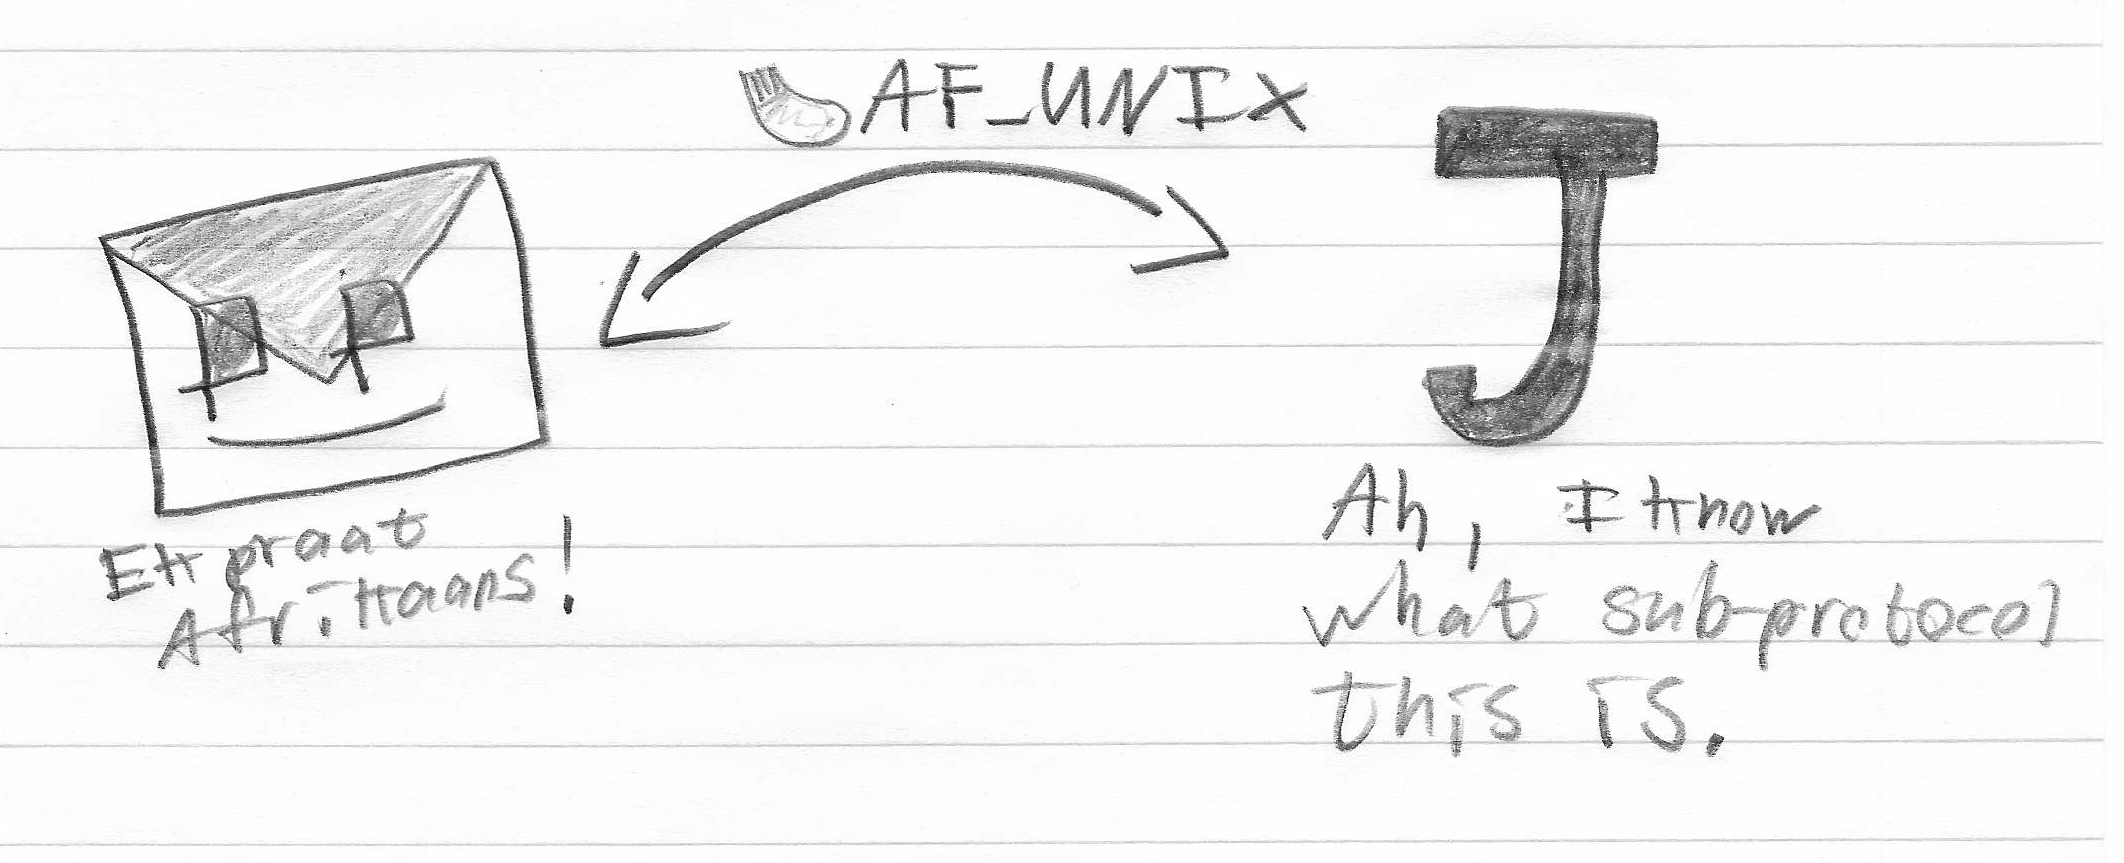 AF_UNIX
J
Ek praat
Afrikaans!
Ah, I know
what sub-protocol
this is.